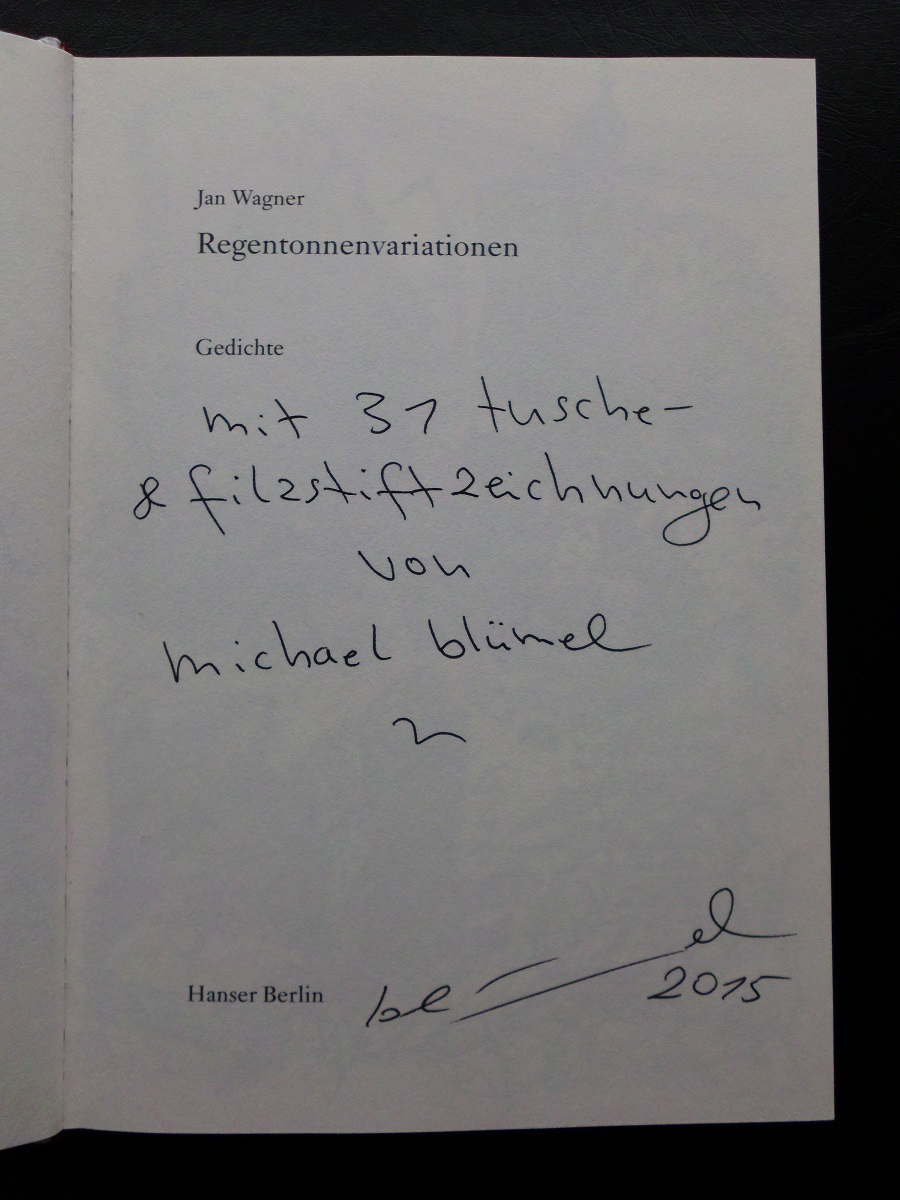 Jan Wagner
Regentonnenvariationen
Gedichte
mit 31 tusche-
& filzstiftzeichnungen
von
michael blümel
Hanser Berlin
2015